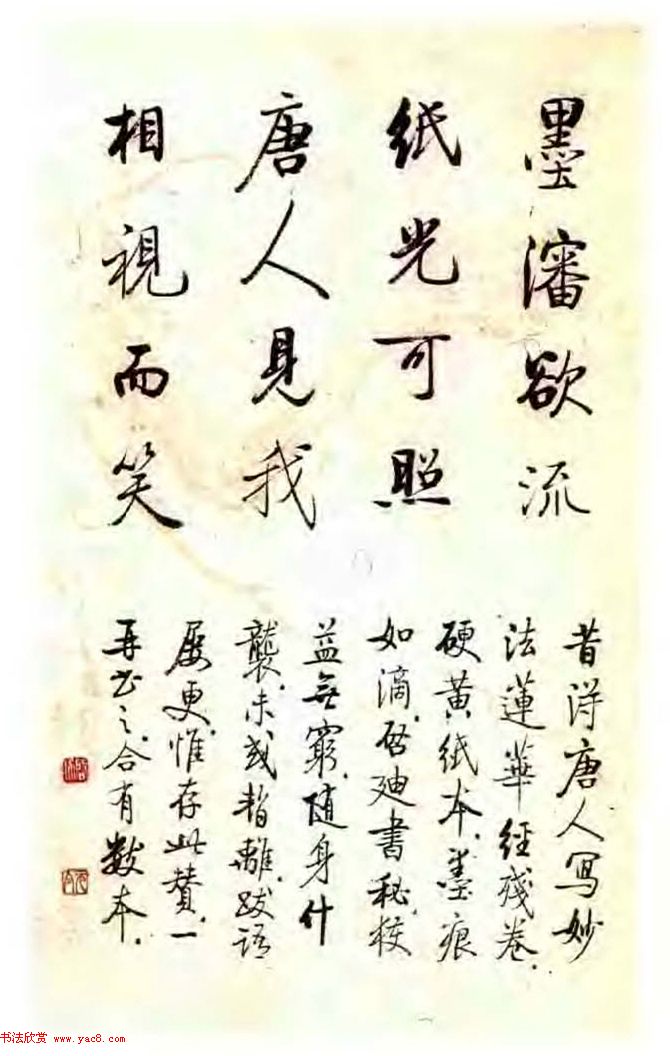 墨瀋欲流
紙光可照
唐人見我
相視而笑
昔得唐人寫妙
法蓮華經殘卷.
硬黃紙本.墨痕
如滴.啓廸書秘.獲
益無窮.隨身什
襲.未或暫離.跋語
屢更.惟存此贊.一
再书之.合有數本.
书法欣赏 www.yac8.com